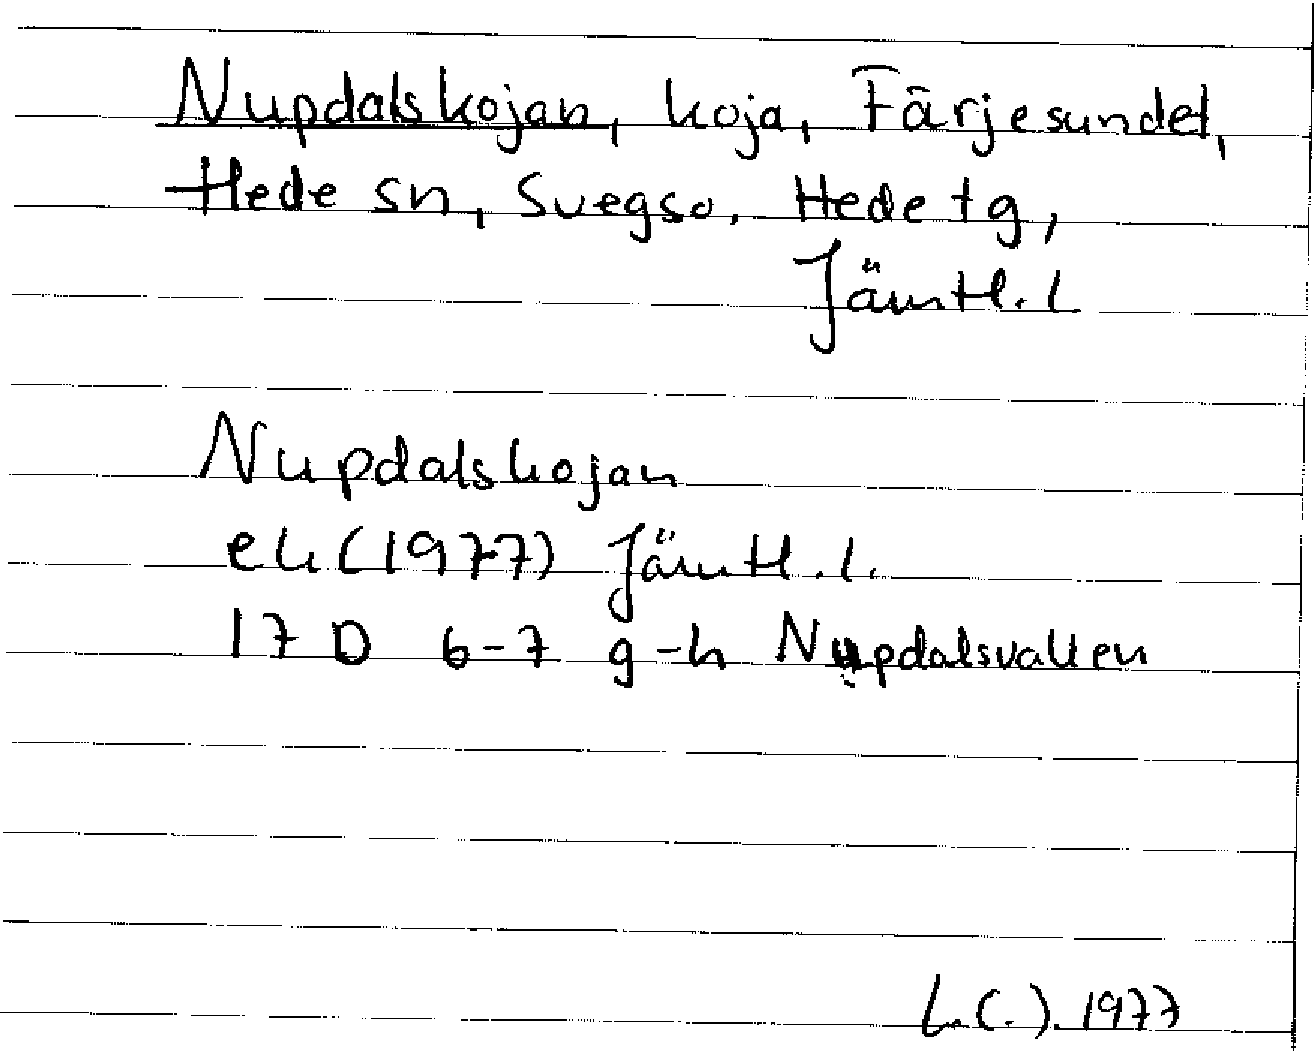 Nupdalskojan, koja, Färjesundet,
Hede sn, Svegs o. Hede tg,
Jämtl. l
Nupdalskojan
ek (1977) Jämtl. l.
17 D 6-7 g-h Nupdalsvallen
1977